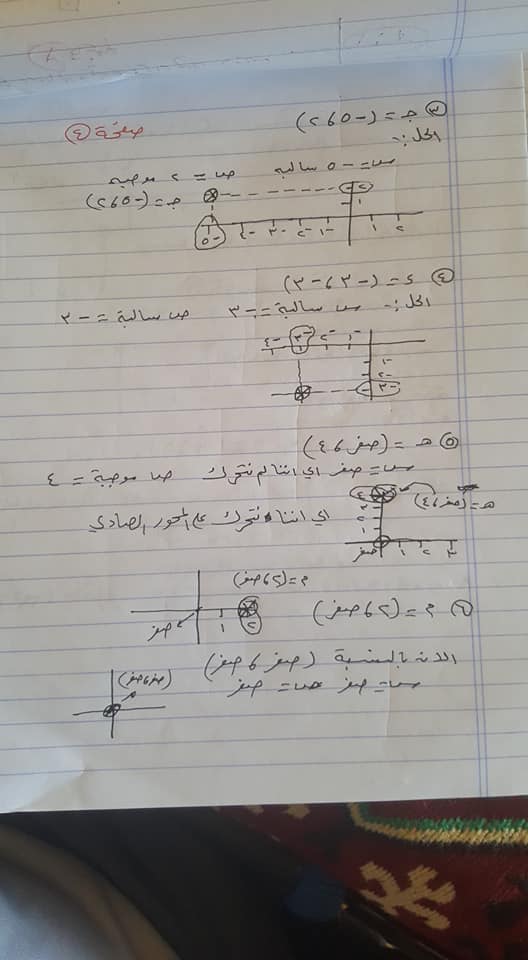 صفحة (٤)
(٣) جـ = (-٥ ، ٢)
الحل :-
س = -٥ سالبة ص = ٢ موجبة
جـ = (-٥ ، ٢)
٢
١
-٥ -٤ -٣ -٢ -١ ١ ٢
(٤) د = (-٣ ، -٣)
الحل :- س سالبة = -٣ ص سالبة = -٣
-٤ -٣ -٢ -١
-١
-٢
-٣
(٥) هـ = (صفر ، ٤)
س = صفر اي اننا لم نتحرك ص موجبة = ٤
هـ = (صفر ، ٤)
اي اننا نتحرك على المحور الصادي
٤
٣
٢
١
صفر ١ ٢ ٣
(٦) م = (٢ ، صفر)
م = (٢ ، صفر)
صفر ١ ٢
الان بالنسبة (صفر ، صفر)
س = صفر ص = صفر
(صفر ، صفر)